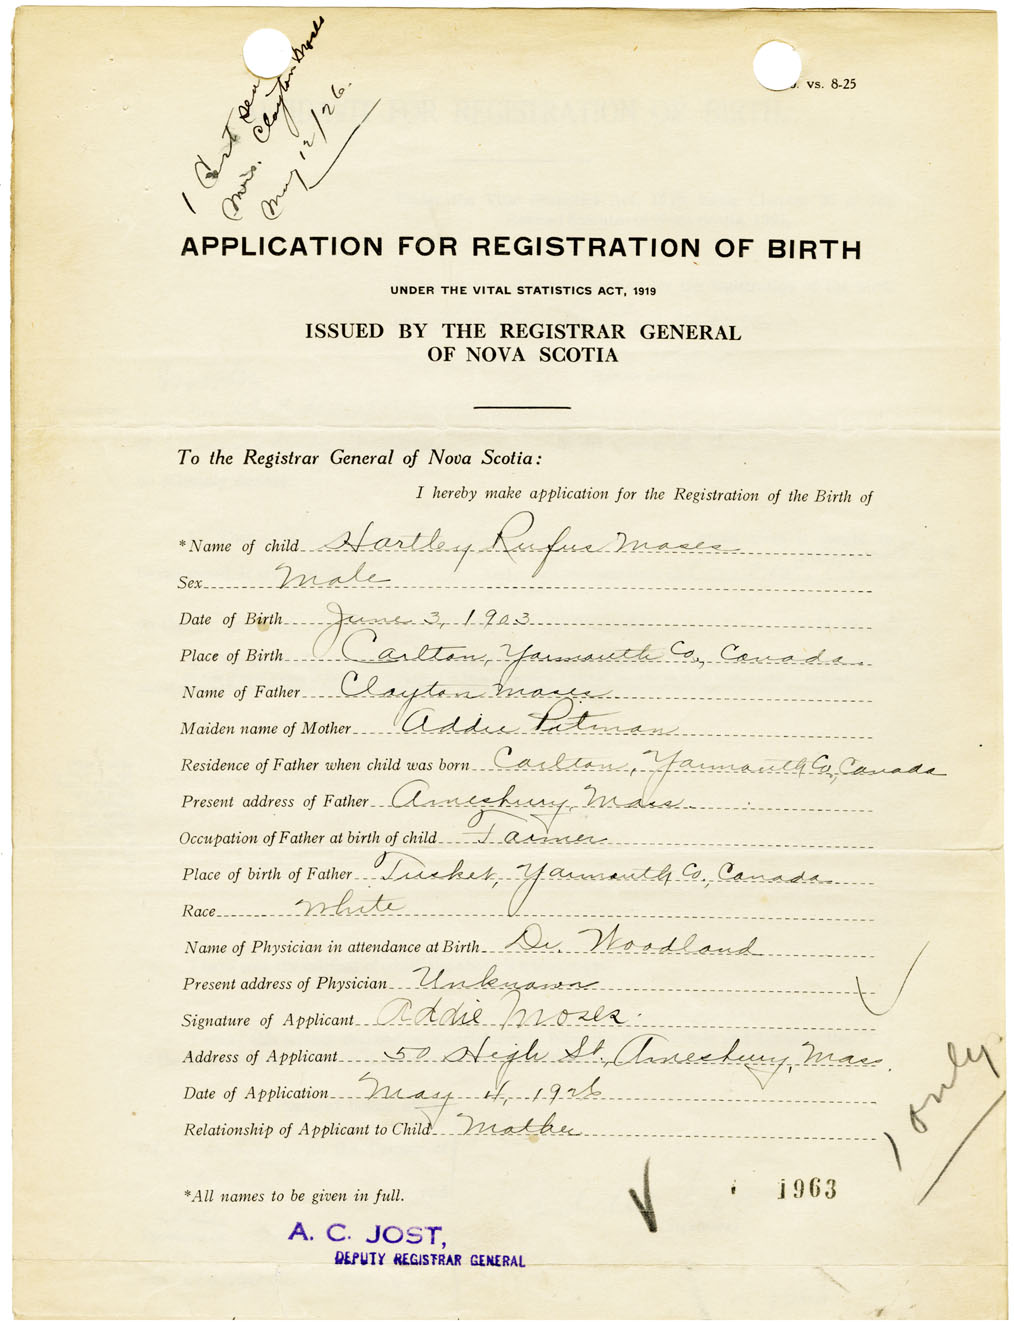 1 Cert sen
Mrs. Clayton Moses
May 12/26.
vs. 8-25
APPLICATION FOR REGISTRATION OF BIRTH
UNDER THE VITAL STATISTICS ACT, 1919
ISSUED BY THE REGISTRAR GENERAL
OF NOVA SCOTIA
To the Registrar General of Nova Scotia:
I hereby make application for the Registration of the Birth of
*Name of child Hartley Rufus Moses
Sex Male
Date of Birth June 3, 1903
Place of Birth Carlton, Yarmouth Co., Canada.
Name of Father Clayton Moses
Maiden name of Mother Addie Pitman
Residence of Father when child was born Carlton, Yarmouth Co., Canada
Present address of Father Amesbury, Mass.
Occupation of Father at birth of child Farmer
Place of birth of Father Tusket, Yarmouth Co., Canada
Race White
Name of Physician in attendance at Birth Dr. Woodland
Present address of Physician Unknown
Signature of Applicant Addie Moses.
Address of Applicant 50 High St., Amesbury, Mass.
Date of Application May 11, 1926
Relationship of Applicant to Child Mother
1 only
*All names to be given in full.
1963
A. C. JOST,
DEPUTY REGISTRAR GENERAL